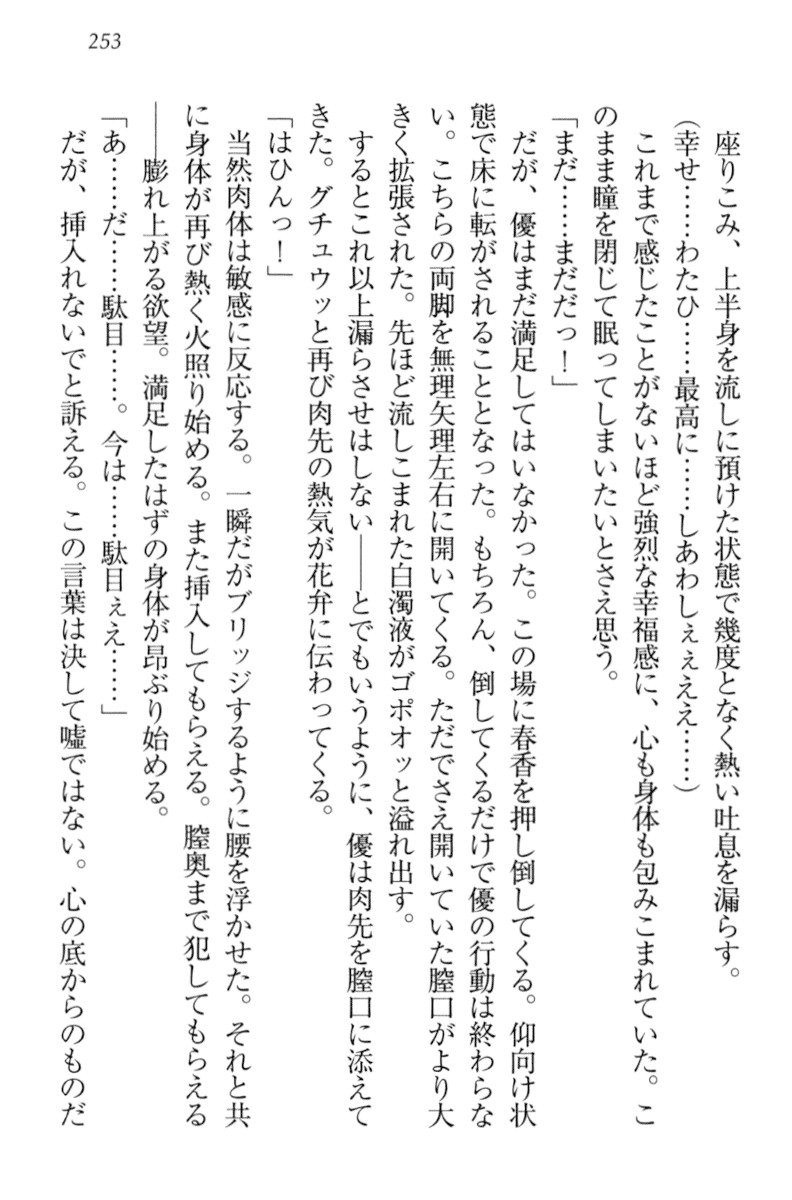 253
座りこみ、上半身を流しに預けた状態で幾度となく熱い吐息を漏らす。
（幸せ……わたひ……最高に……しあわしぇぇええ……）
これまで感じたことがないほど強烈な幸福感に、心も身体も包みこまれていた。こ
のまま瞳を閉じて眠ってしまいたいとさえ思う。
「まだ……まだだっ！」
だが、優はまだ満足してはいなかった。この場に春香を押し倒してくる。仰向け状
態で床に転がされることとなった。もちろん、倒してくるだけで優の行動は終わらな
い。こちらの両脚を無理矢理左右に開いてくる。ただでさえ開いていた膣口がより大
きく拡張された。先ほど流しこまれた白濁液がゴポオッと溢れ出す。
するとこれ以上漏らさせはしない――とでもいうように、優は肉先を膣口に添えて
きた。グチュウッと再び肉先の熱気が花弁に伝わってくる。
「はひんっ！」
当然肉体は敏感に反応する。一瞬だがブリッジするように腰を浮かせた。それと共
に身体が再び熱く火照り始める。また挿入してもらえる。膣奥まで犯してもらえる
――膨れ上がる欲望。満足したはずの身体が昂ぶり始める。
「あ……だ……駄目……。今は……駄目ぇえ……」
だが、挿入れないでと訴える。この言葉は決して嘘ではない。心の底からのものだ